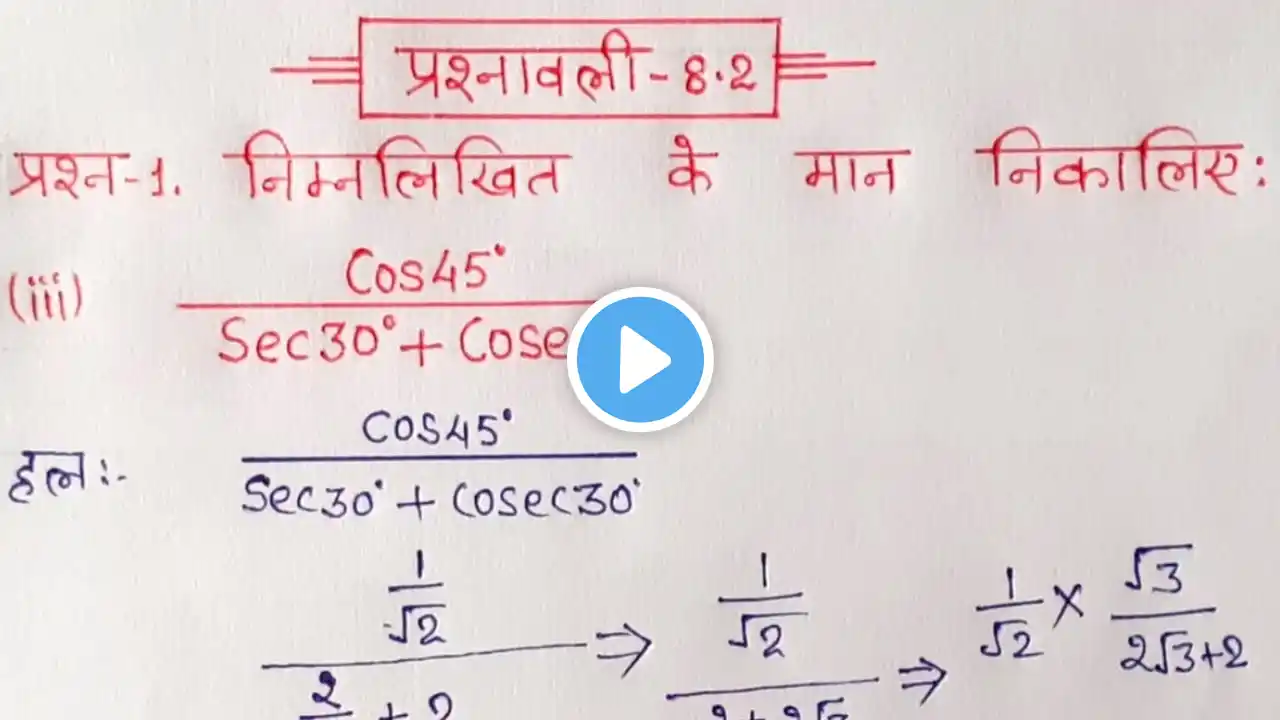 प्रश्नावली-8.2
प्रश्न-1. निम्नलिखित के मान निकालिए:
(iii) Cos45°
Sec30° +
हल:- cos45°
Sec30° + cosec30°
1 1 1 × √3
√2 ⇒ √2 ⇒ √2 2√3+2
2 + 2